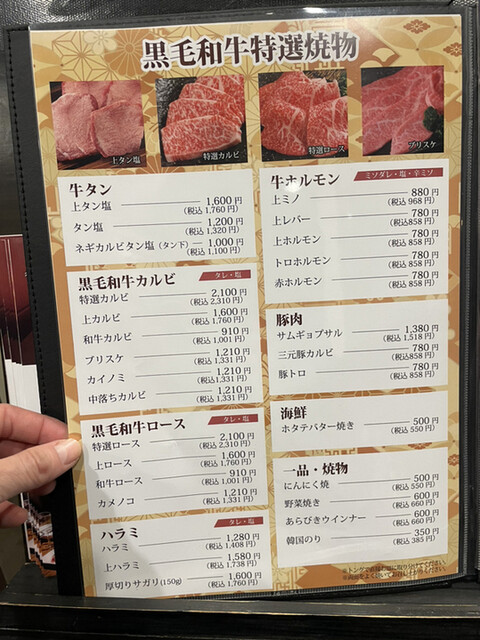 黒毛和牛特選焼物
上タン塩
特選カルビ
特選ロース
ブリスケ
牛タン
上タン塩 1,600円
(税込 1,760円)
タン塩 1,200円
(税込 1,320円)
ネギカルビタン塩(タン下) 1,000円
(税込 1,100円)
黒毛和牛カルビ タレ・塩
特選カルビ 2,100円
(税込 2,310円)
上カルビ 1,600円
(税込 1,760円)
和牛カルビ 910円
(税込 1,001円)
ブリスケ 1,210円
(税込 1,331円)
カイノミ 1,210円
(税込 1,331円)
中落ちカルビ 1,210円
(税込 1,331円)
黒毛和牛ロース タレ・塩
特選ロース 2,100円
(税込 2,310円)
上ロース 1,600円
(税込 1,760円)
和牛ロース 910円
(税込 1,001円)
カメノコ 1,210円
(税込 1,331円)
ハラミ タレ・塩
ハラミ 1,280円
(税込 1,408円)
上ハラミ 1,580円
(税込 1,738円)
厚切りサガリ(150g) 1,600円
(税込 1,760円)
牛ホルモン ミソダレ・塩・辛ミソ
上ミノ 880円
(税込 968円)
上レバー 780円
(税込858円)
上ホルモン 780円
(税込858円)
トロホルモン 780円
(税込858円)
赤ホルモン 780円
(税込858円)
豚肉
サムギョプサル 1,380円
(税込 1,518円)
三元豚カルビ 780円
(税込858円)
豚トロ 780円
(税込 858円)
海鮮
ホタテバター焼き 500円
(税込 550円)
一品・焼物
にんにく焼 500円
(税込 550円)
野菜焼き 600円
(税込 660円)
あらびきウインナー 600円
(税込 660円)
韓国のり 350円
(税込 385円)